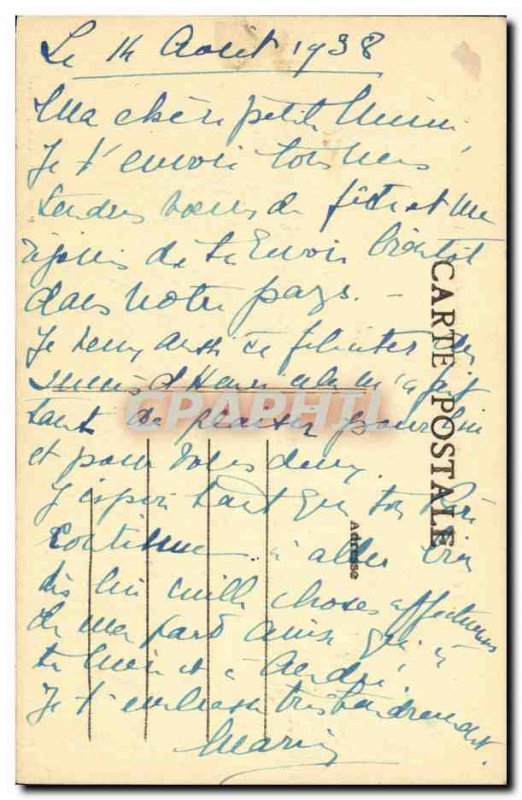 Le 14 Août 1938
Ma chère petite Mimi,
Je t'envoie tous mes
tendres vœux de fête et me
réjouis de te revoir bientôt
dans notre pays. —
Je veux aussi te féliciter du
succès d'Henri cela m'a fait
tant de plaisir pour lui
et pour vous deux.
J'espère tant que ton
continue à aller bien
dis lui mille choses affectueuses
de ma part ainsi qu'à
ta et à André,
Je t'embrasse très tendrement.
CARTE POSTALE
Adresse
CPAPHIL